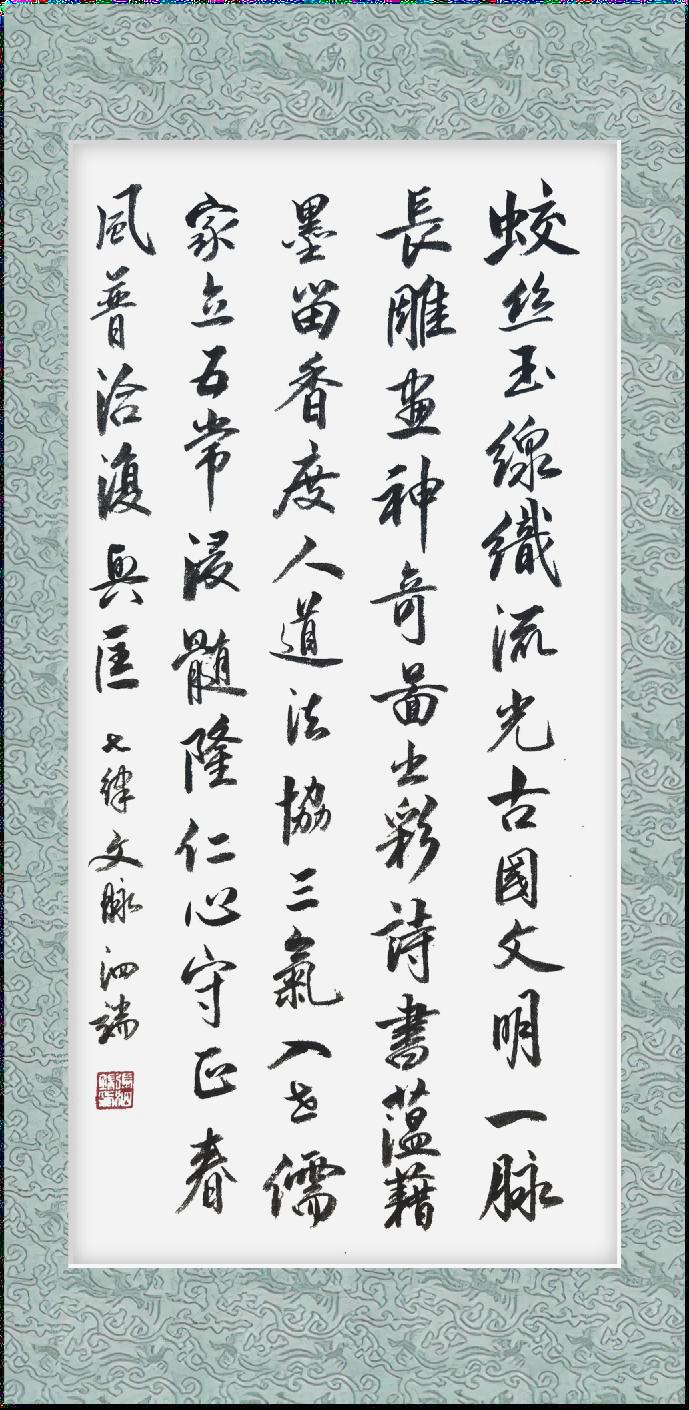 蛟丝玉線織流光古國文明一脉
長雕画神奇圖出彩詩書蕴藉
墨留香度人道法協三氣入世儒
家立五常浸髓隆仁心守正春
風普洽復興匡 七律文脉 泗端